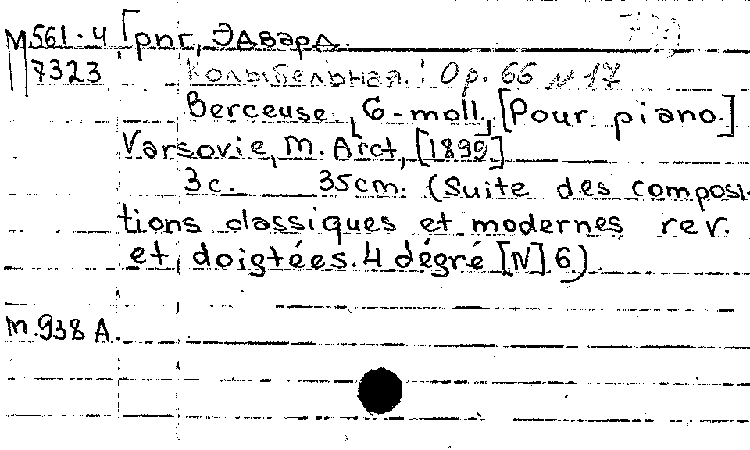 М561-4 Григ, Эдвард.
7323 Колыбельная. Op. 66 № 17
Berceuse, G-moll, [Pour piano.]
Varsovie, M. Arct, [1899]
3 c. 35cm. (Suite des composi-
tions classiques et modernes rev.
et doigtées. 4 dégré [N] 6)
m.938 A.